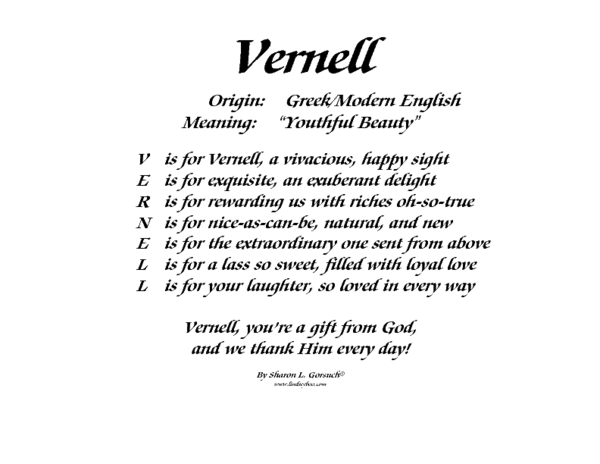 Vernell
Origin: Greek/Modern English
Meaning: "Youthful Beauty"
V is for Vernell, a vivacious, happy sight
E is for exquisite, an exuberant delight
R is for rewarding us with riches oh-so-true
N is for nice-as-can-be, natural, and new
E is for the extraordinary one sent from above
L is for a lass so sweet, filled with loyal love
L is for your laughter, so loved in every way
Vernell, you're a gift from God,
and we thank Him every day!
By Sharon L. Gorsuch©